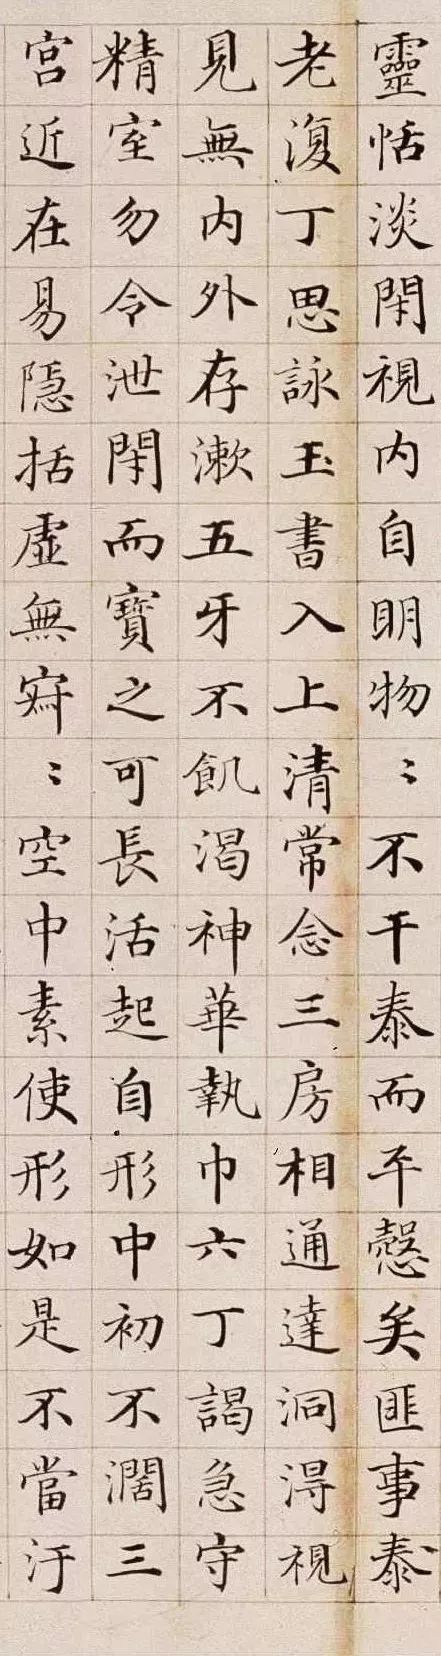 靈恬淡閑視內自明物〻不干泰而平愨矣匪事泰
老復丁思詠玉書入上清常念三房相通達洞淂視
見無內外存漱五牙不飢渴神華執巾六丁謁急守
精室勿令泄閇而寶之可長活起自形中初不濶三
宮近在易隱括虛無㝛〻空中素使形如是不當汙